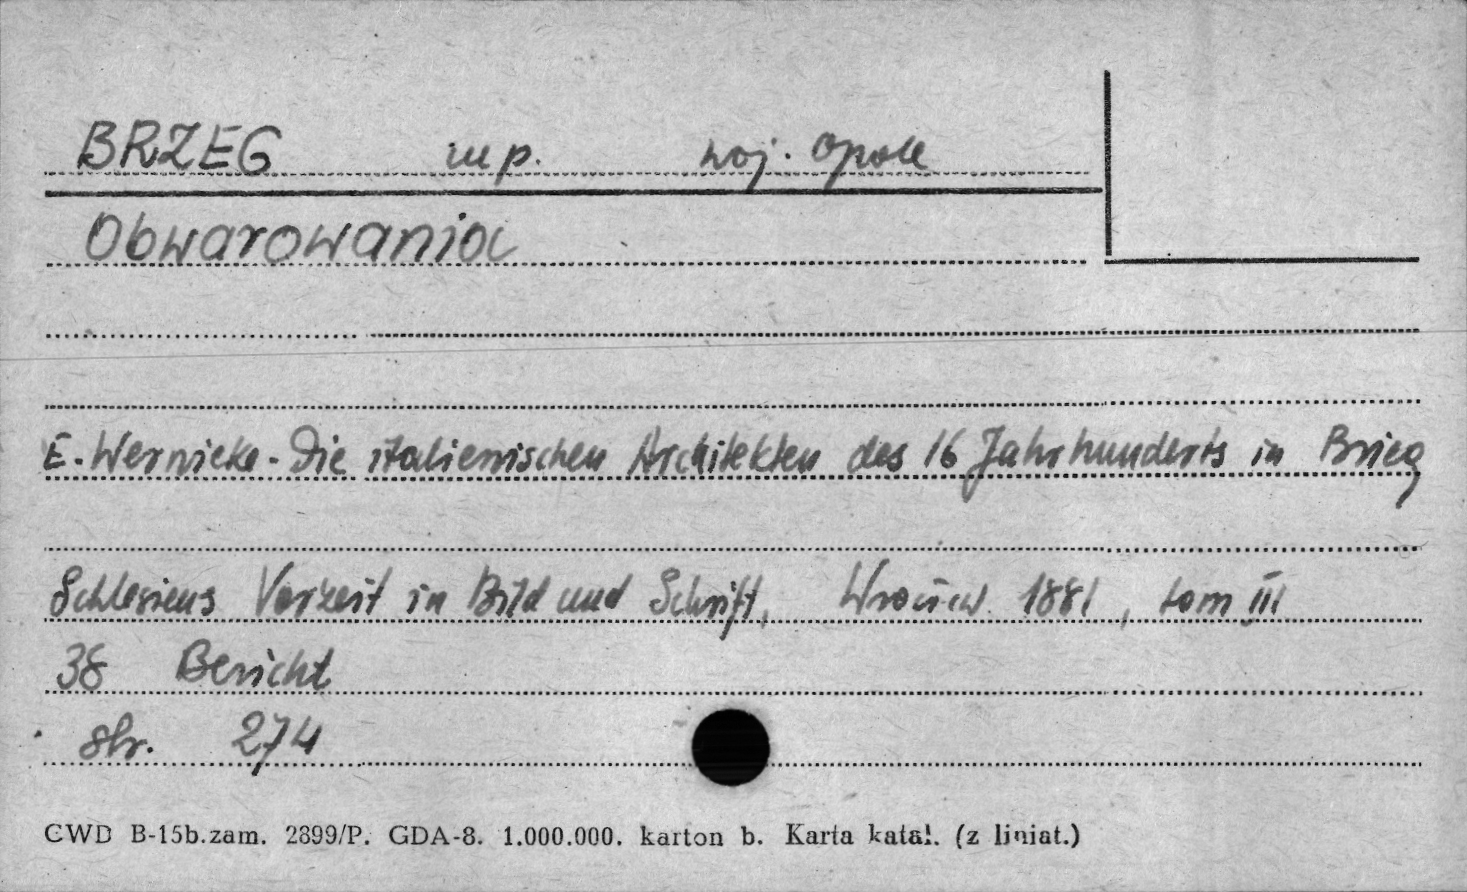 BRZEG m p. woj. Opole
Obwarowania
E. Wernicke - Die italienischen Architekten des 16 Jahrhunderts in Brieg
Schlesiens Vorzeit in Bild und Schrift, 1881, tom III
38 Bericht
str. 274
CWD B-15b.zam. 2899/P. GDA-8. 1.000.000. karton b. Karta katal. (z liniat.)